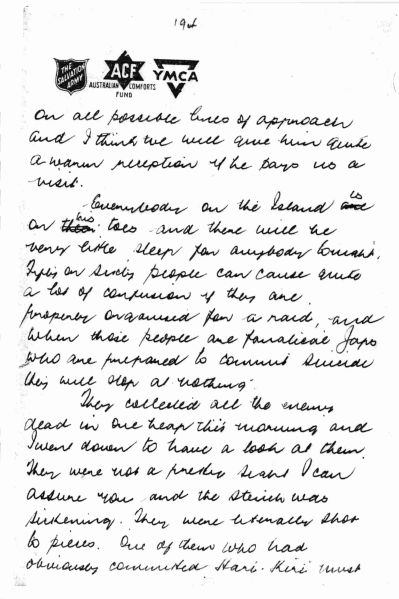 194
THE SALVATION ARMY
ACF
AUSTRALIAN COMFORTS FUND
YMCA
on all possible lines of approach
and I think we will give him quite
a warm reception if he pays us a
visit.
Everybody on the Island is
on his toes and there will be
very little sleep for anybody tonight.
Fifty or sixty people can cause quite
a lot of confusion if they are
properly organised for a raid, and
when those people are fanatical Japs
who are prepared to commit suicide
they will stop at nothing.
They collected all the enemy
dead in one heap this morning and
I went down to have a look at them.
They were not a pretty sight I can
assure you and the stench was
sickening. They were literally shot
to pieces. One of them who had
obviously committed Hari-Kiri must